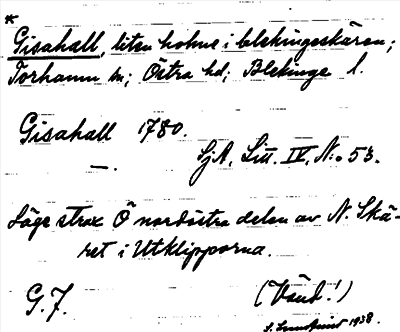 *
Gisahall, liten holme i blekingeskären;
Torhamn sn; Östra hd; Blekinge l.
Gisahall 1780.
—. SjA, Litt. IV, N:o 53.
Läge strax Ö nordöstra delen av N. Skä-
ret i Utklipporna.
G.J. (Vänd!)
1938.